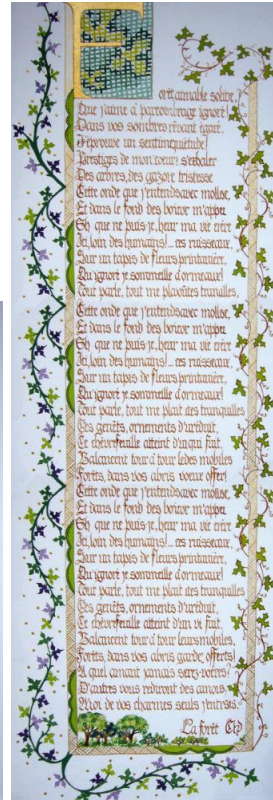 orêt, aimable solitude,
Que j'aime à parcouvrage ignoré!
Dans vos sombres rêvant égaré,
J'éprouve un sentimequiétude!
Prestiges de mon coeur s'exhaler
Des arbres, des gazons tristesse
Cette onde que j'entendsavec mollse,
Et dans le fond des boivor m'appeu
Oh que ne puis-je, heur ma vie entre
Ici, loin des humains!... ces ruisseaux,
Sur un tapis de fleurs printanière,
Qu'ignoré je sommeille d'ormeaux!
Tout parle, tout me plaoûtes tranulles,
Cette onde que j'entendsavec mollse,
Et dans le fond des boivor m'appeu
Oh que ne puis-je, heur ma vie entre
Ici, loin des humains!... ces ruisseaux,
Sur un tapis de fleurs printanière,
Qu'ignoré je sommeille d'ormeaux!
Tout parle, tout me plaît des tranquilles
Ces genêts, ornements d'uréduit,
Ce chèvrefeuille atteint d'un qui fuit,
Balancent tour à tour ledes mobiles
Forêts, dans vos abris voeux offers!
Cette onde que j'entendsavec mollse,
Et dans le fond des boivor m'appeu
Oh que ne puis-je, heur ma vie entre
Ici, loin des humains!... ces ruisseaux,
Sur un tapis de fleurs printanière,
Qu'ignoré je sommeille d'ormeaux!
Tout parle, tout me plaît des tranquilles
Ces genêts, ornements d'uréduit,
Ce chèvrefeuille atteint d'un vi fuit,
Balancent tour à tour leursmobiles,
Forêts, dans vos abris gardez offerts!
A quel amant jamais serez-votres?
D'autres vous rediront des amours,
Moi de vos charmes seuls j'entris.
La forêt